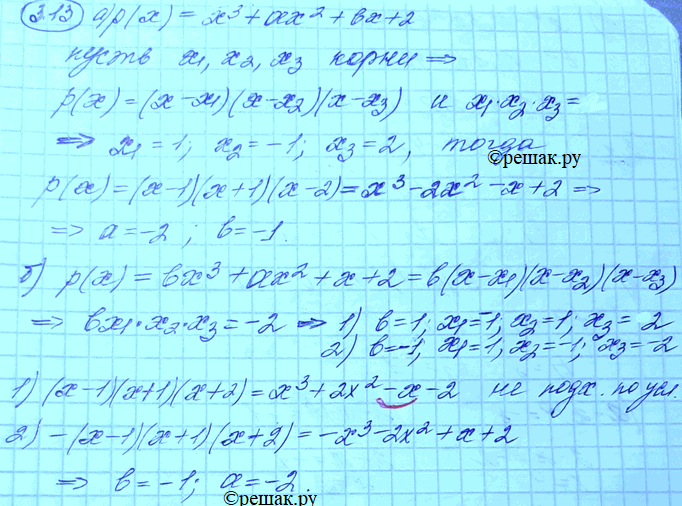 3.13 а) p(x) = x³ + ax² + bx + 2
пусть x₁, x₂, x₃ корни ⇒
p(x) = (x - x₁)(x - x₂)(x - x₃) и x₁·x₂·x₃ =
⇒ x₁ = 1; x₂ = -1; x₃ = 2, тогда
©решак.ру
p(x) = (x-1)(x+1)(x-2) = x³ - 2x² - x + 2 ⇒
⇒ a = -2; b = -1.
б) p(x) = bx³ + ax² + x + 2 = b(x - x₁)(x - x₂)(x - x₃)
⇒ bx₁·x₂·x₃ = -2 ⇒ 1) b = 1; x₁ = -1; x₂ = 1; x₃ = 2
2) b = -1; x₁ = 1; x₂ = -1; x₃ = -2
1) (x-1)(x+1)(x+2) = x³ + 2x² - x - 2 не подх. по усл.
2) -(x-1)(x+1)(x+2) = -x³ - 2x² + x + 2
⇒ b = -1; a = -2.
©решак.ру